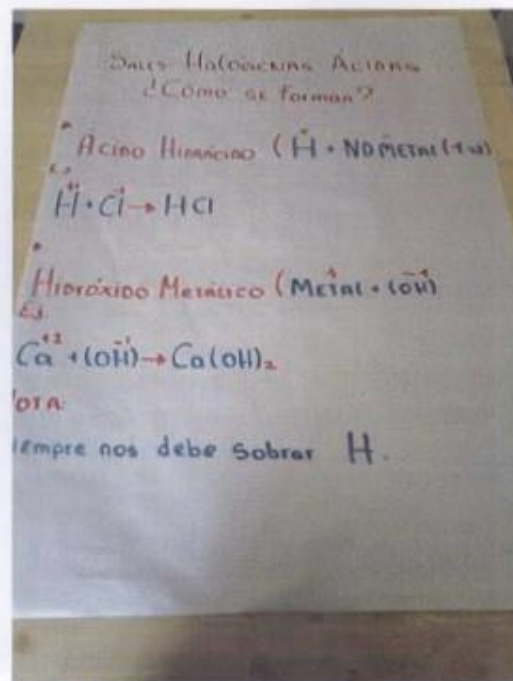 SALES HALÓGENAS ÁCIDAS
¿CÓMO SE FORMAN?
• ÁCIDO HIDRÁCIDO (H⁺ + NO METAL
Ej
H⁺¹ + Cl⁻¹ → HCl
• HIDRÓXIDO METÁLICO (METAL⁺ + (OH)⁻¹
Ej
Ca⁺² + (OH)⁻¹ → Ca(OH)₂
OTA
iempre nos debe sobrar H.